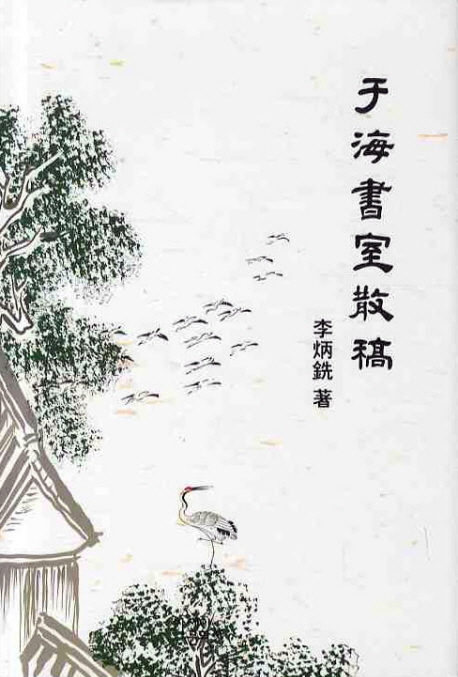 于海書室散稿
李炳銑 著